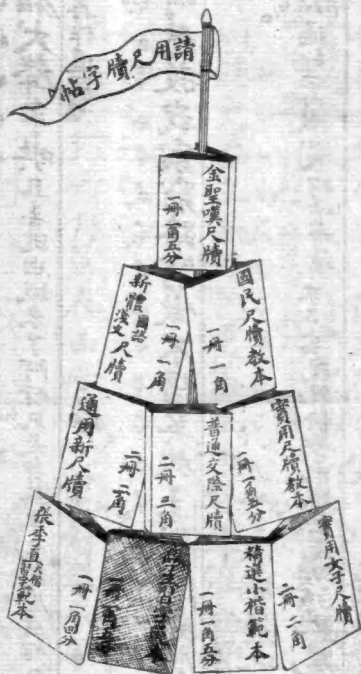 請用尺牘字帖
金聖嘆尺牘
一冊 一角五分
國民尺牘教本
一冊 一角
新體國語淺文尺牘
一冊 一角
實用尺牘教本
一冊 一角五分
普通交際尺牘
二冊 三角
通用新尺牘
二冊 二角
實用女子尺牘
二冊 二角
選小楷範本
一冊 一角五分
張季直習字範本
一冊 一角四分